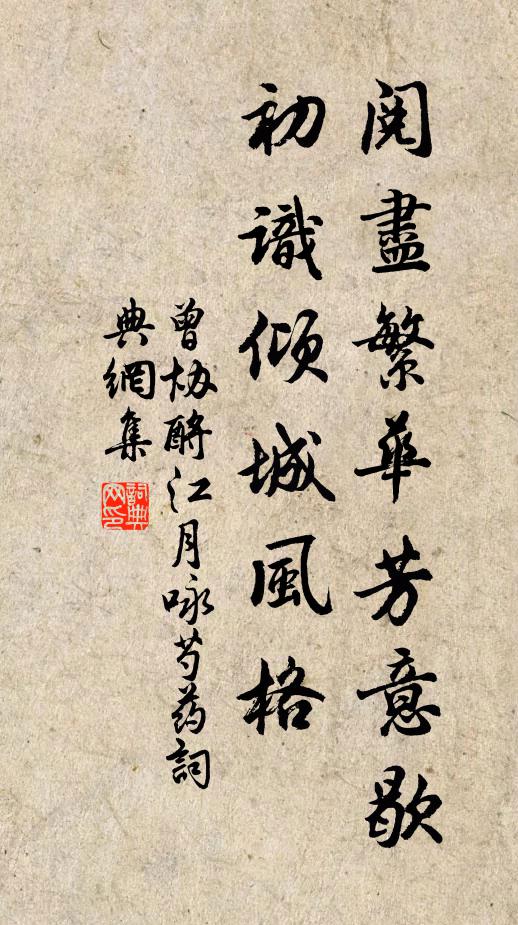 閱盡繁華芳意歇
初識傾城風格
曾協酹江月咏芍药詞
典網集
詞典網印